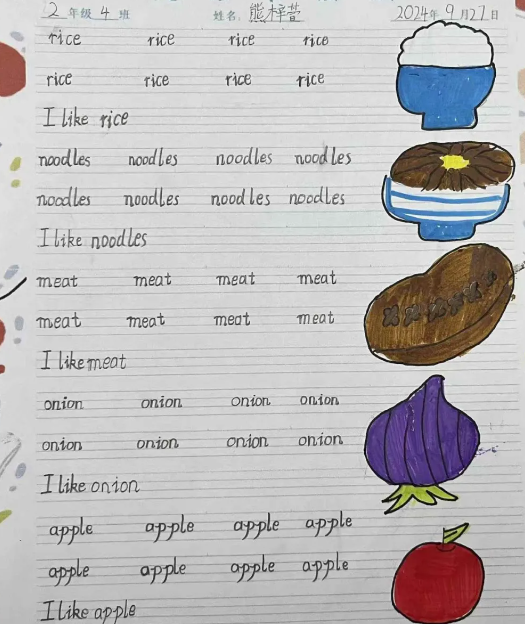 2 年级 4 班 姓名: 熊梓萱 2024年9月27日
rice rice rice rice
rice rice rice rice
I like rice
noodles noodles noodles noodles
noodles noodles noodles noodles
I like noodles
meat meat meat meat
meat meat meat meat
I like meat
onion onion onion onion
onion onion onion onion
I like onion
apple apple apple apple
apple apple apple apple
I like apple